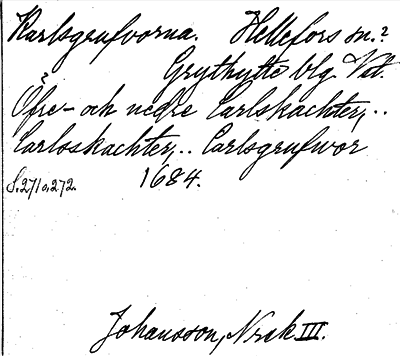 Karlsgrufvorna. Hellefors sn.?
Grythytte blg. Vstl.
Öfre- och nedre Carlskachter,..
Carlosskachter,.. Carlsgrufwor
S. 271 o. 272. 1684.
Johansson, Nrsk III.